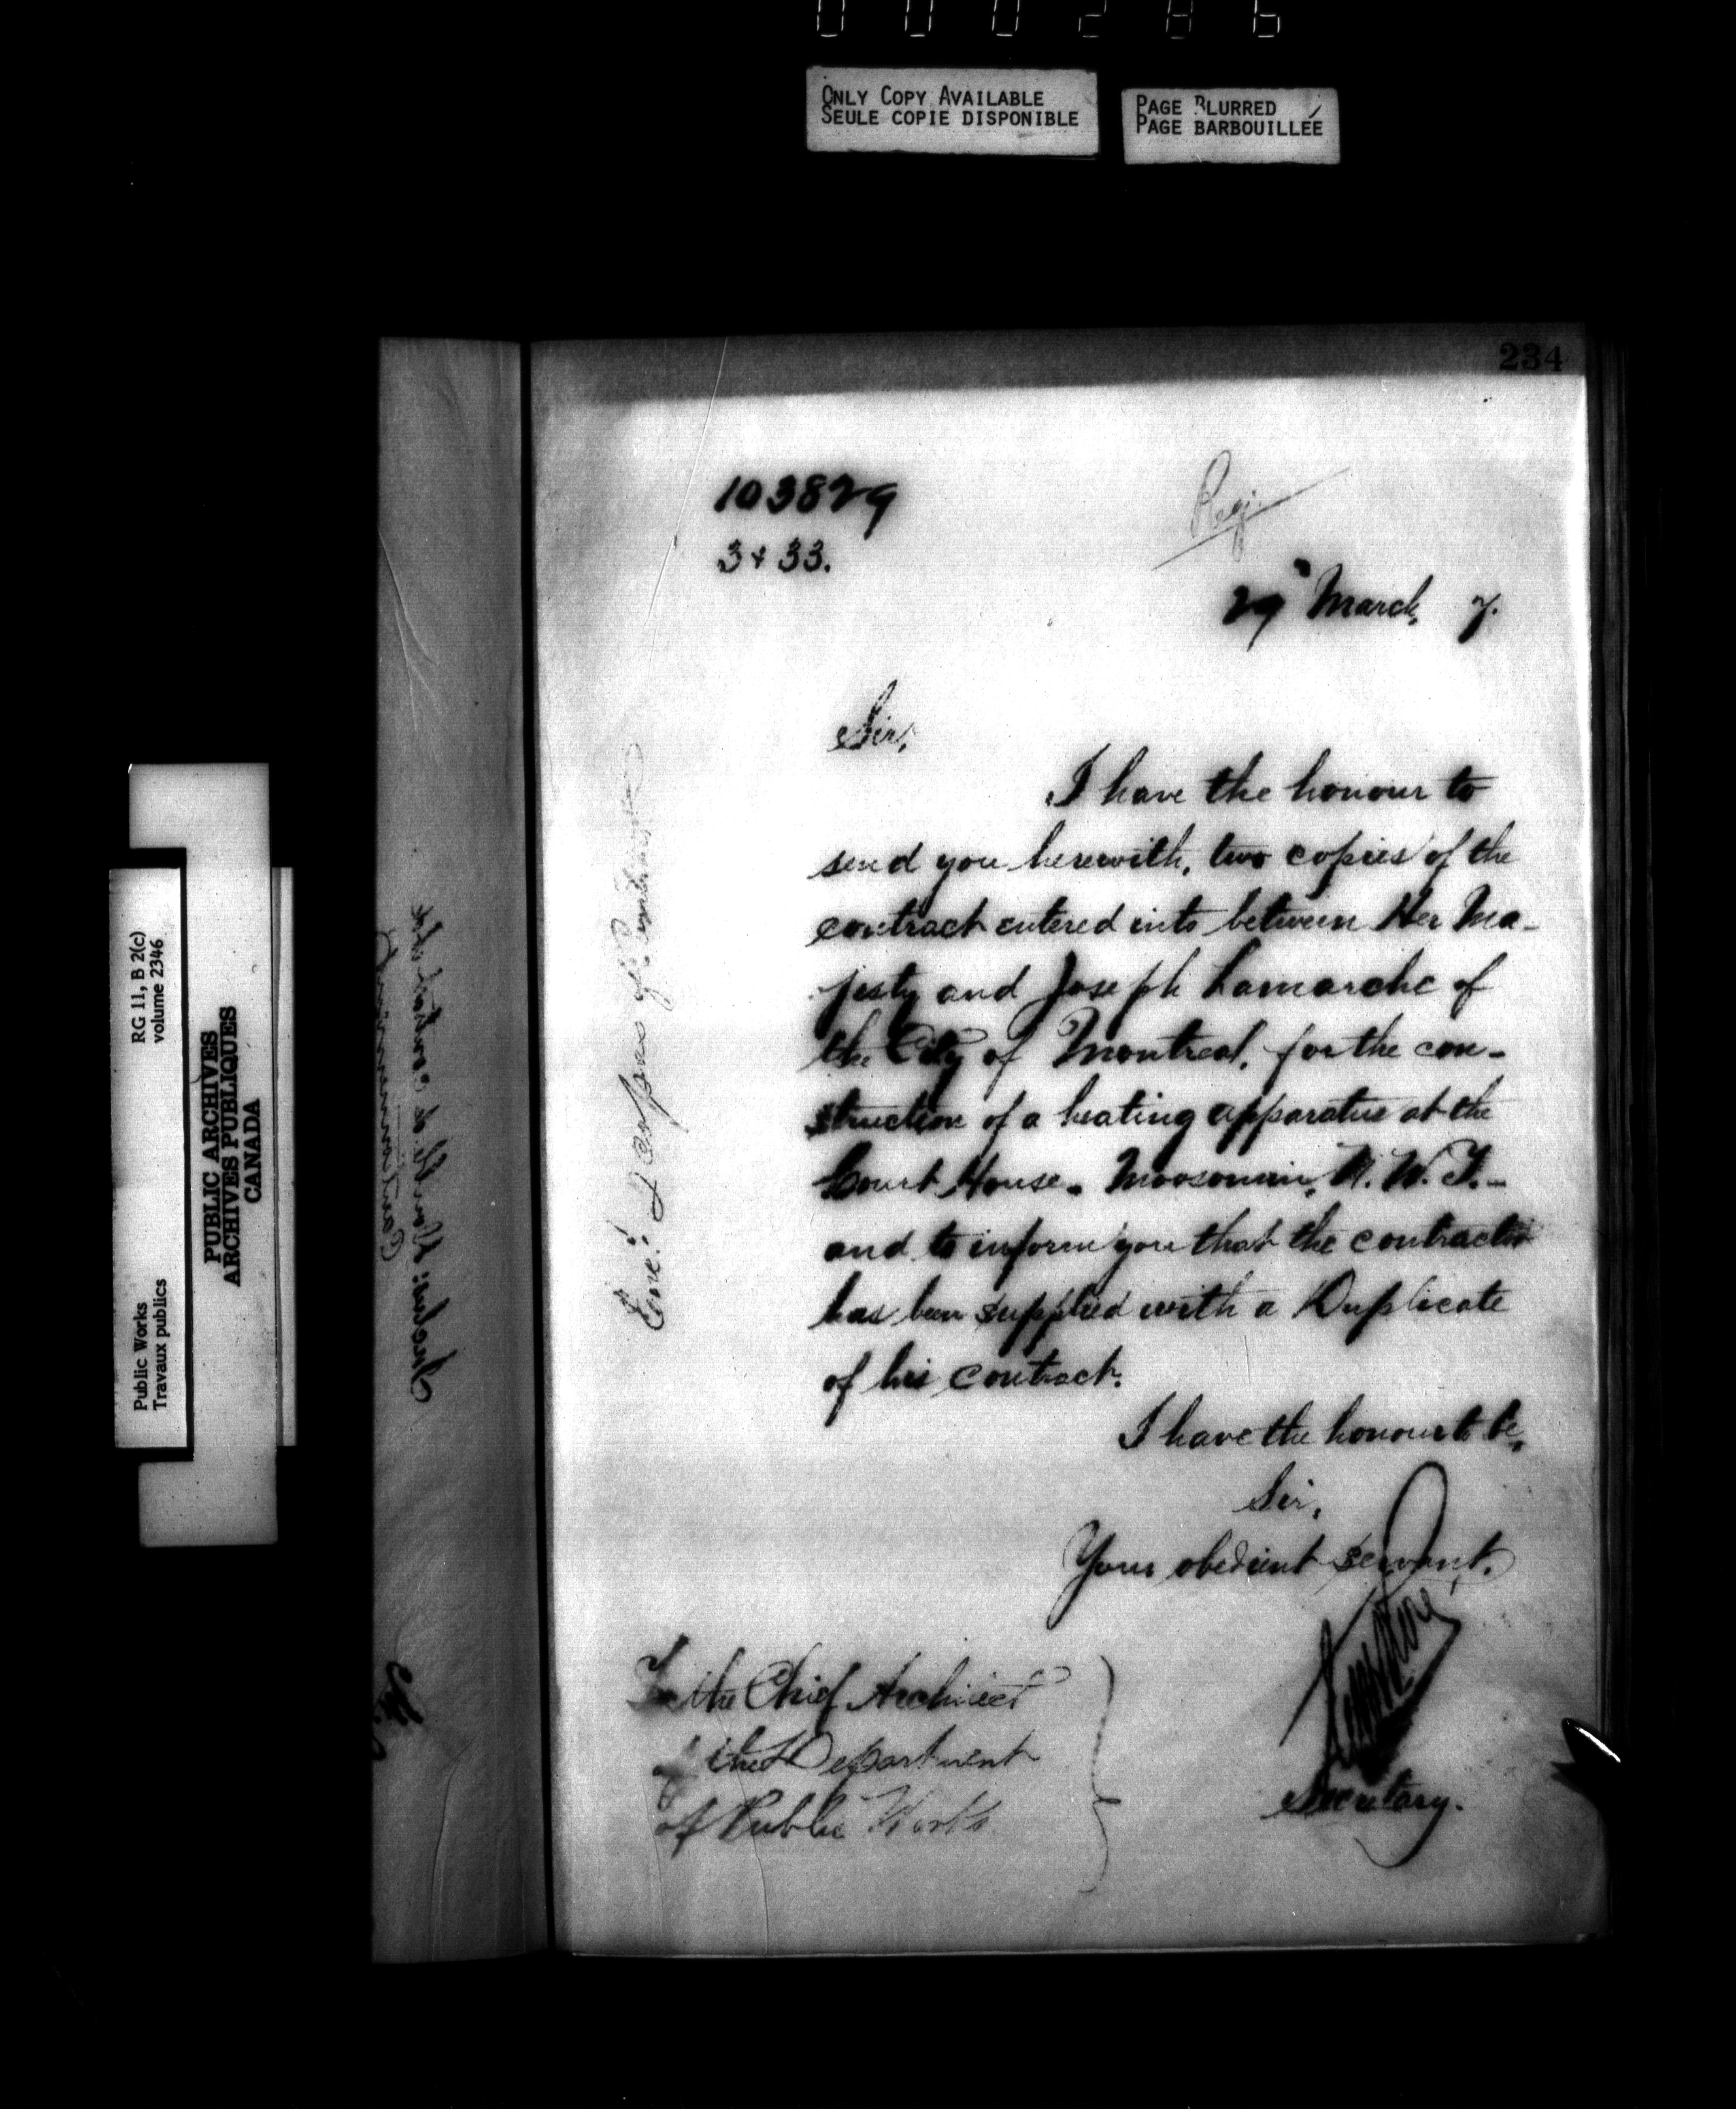 000286
ONLY COPY AVAILABLE
SEULE COPIE DISPONIBLE
PAGE BLURRED
PAGE BARBOUILLÉE
234
103829
3 & 33.
Regi
29" March, 7.
Sir,
I have the honour to
send you herewith, two copies of the
contract entered into between Her Ma-
jesty and Joseph Lamarche of
the City of Montreal, for the con-
struction of a heating apparatus at the
Court House. Moosomin, N. W. T. -
and to inform you that the contractor
has been supplied with a Duplicate
of his contract.
I have the honour to be,
Sir,
Your obedient servant.
Secretary.
To the Chief Architect
of the Department
of Public Works
Encl: 2 copies of Contract
Public Works
Travaux publics
RG 11, B 2(c)
volume 2346
PUBLIC ARCHIVES
ARCHIVES PUBLIQUES
CANADA